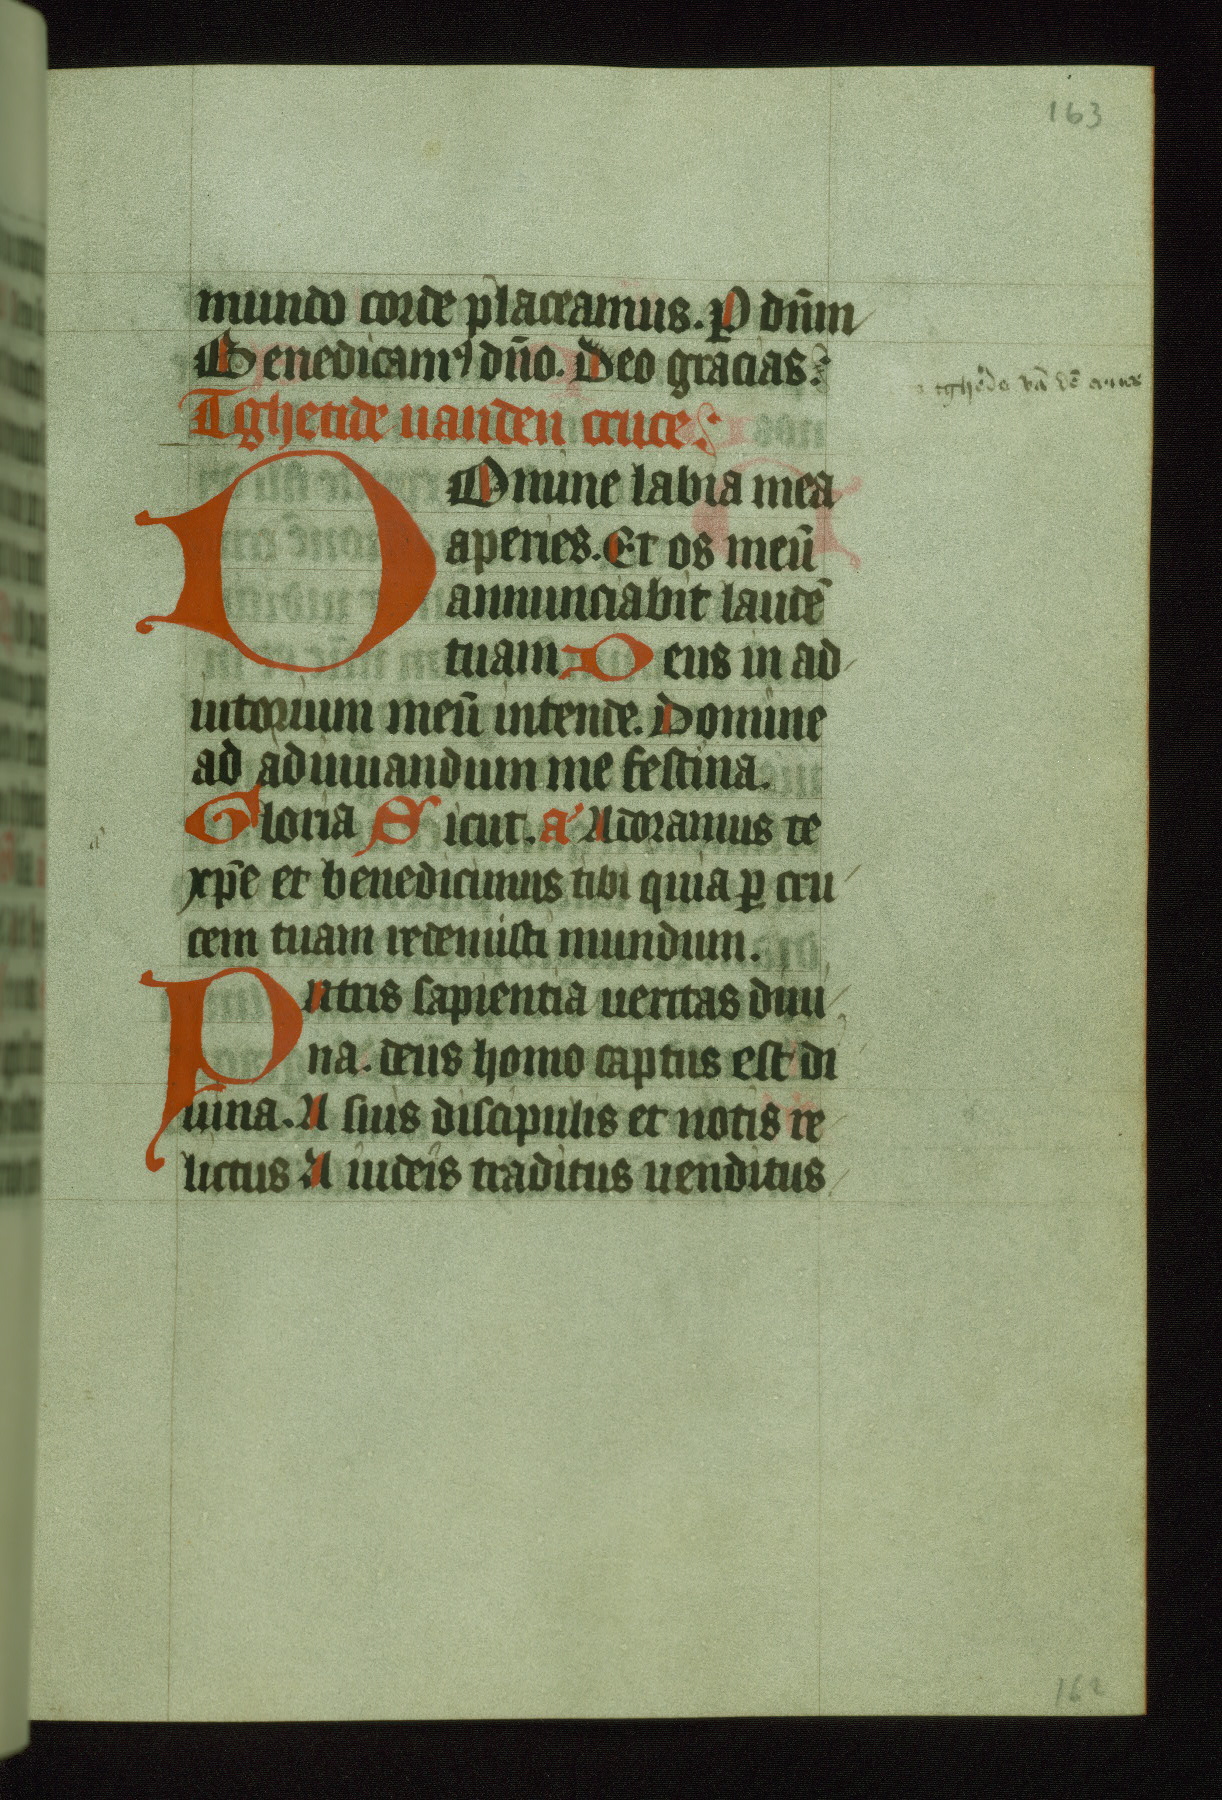 163
mundo corde placeamus. P dñm
Benedicamꝰ dño. Deo gracias.
tghetide vā dē cruce
Tghetide uanden cruce.
DOmine labia mea
aperies. Et os meū
annunciabit laudē
tuam Deus in ad
iutorium meū intende. Domine
ad adiuuandum me festina.
Gloria Sicut. a' Adoramus te
xp̄e et benedicimus tibi quia ꝑ cru
cem tuam redemisti mundum.
PAtris sapientia ueritas diui
na. deus homo captus est di
uina. A suis discipulis et notis re
lictus A iudeis traditus uenditus
162